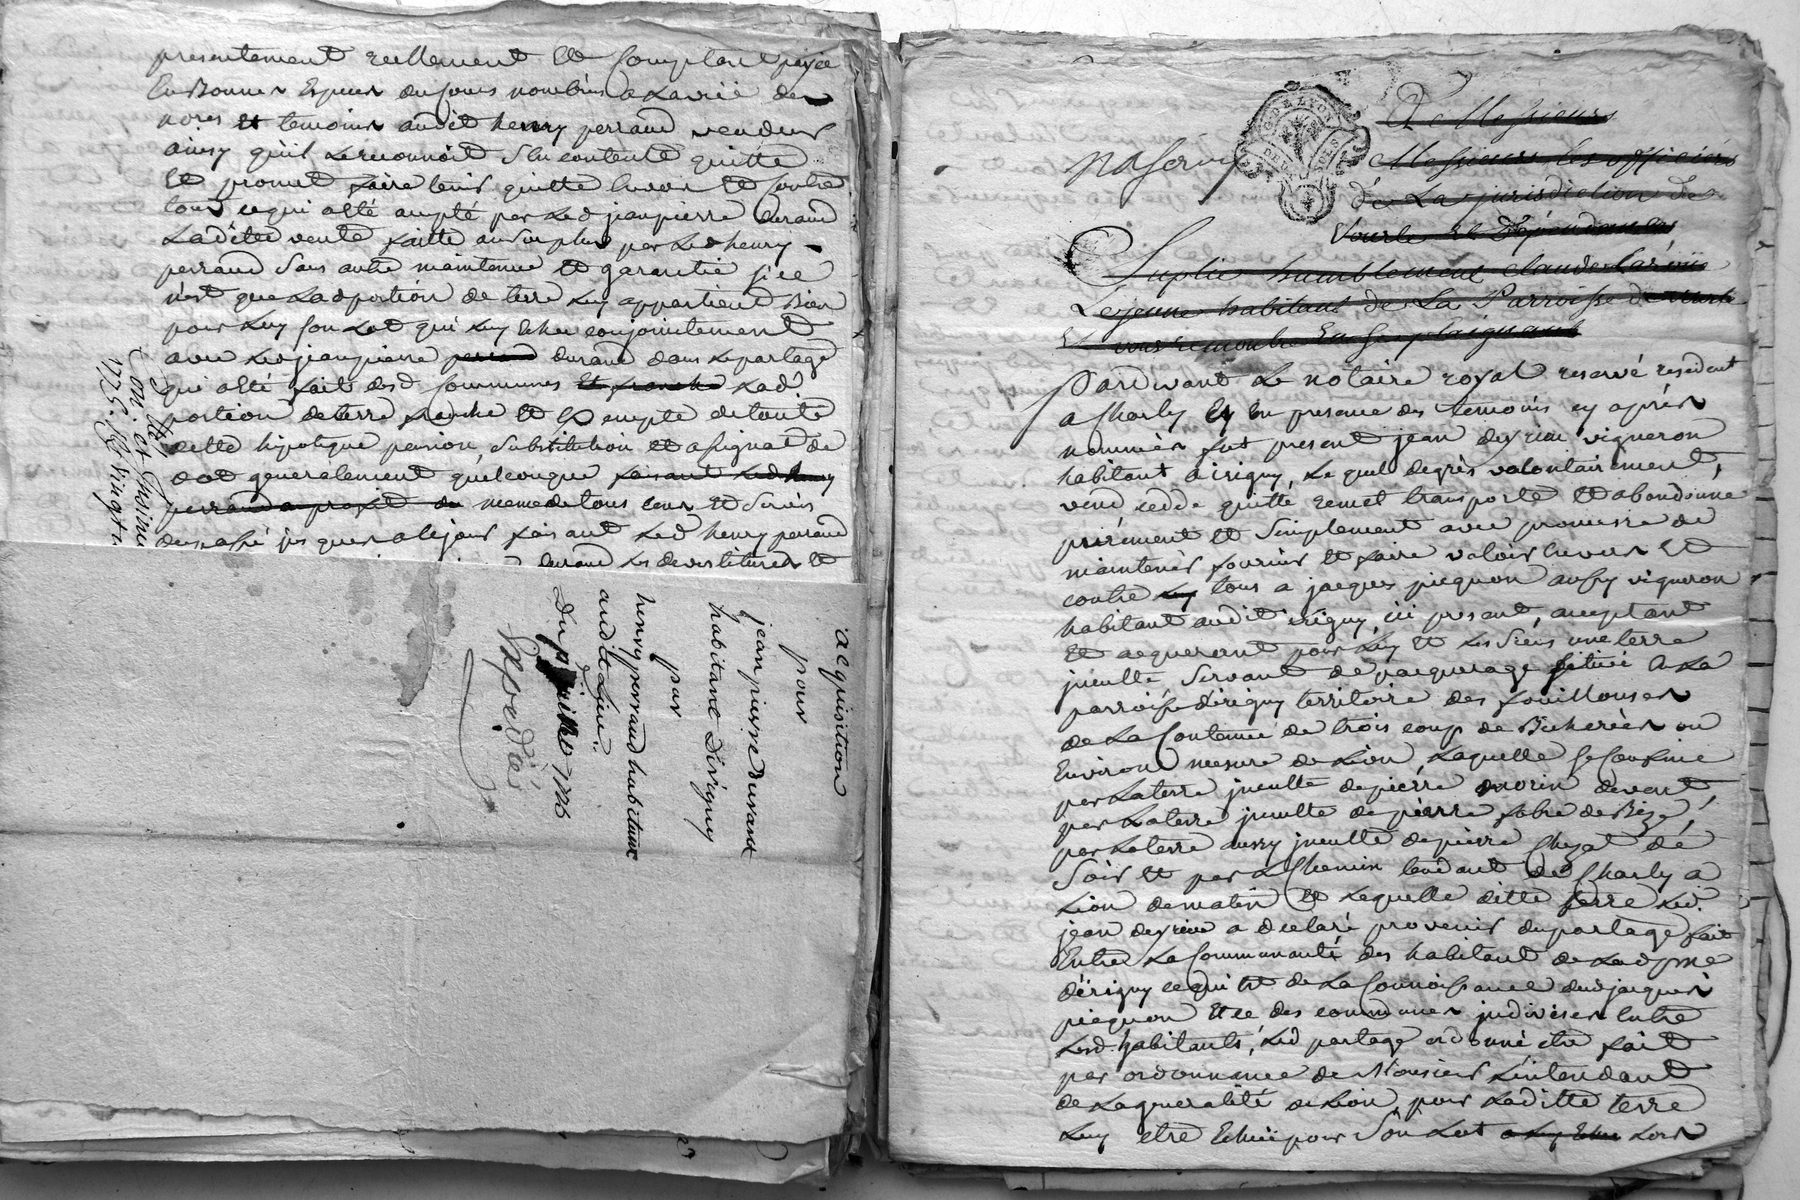 presentement reellement et comptant payée
En Bonnes Especes du Cours nombrées a la vüe des
nores et temoins audit henry perraud vendeur
ainsy qu'il le reconnoit s'en contente quitte
Et promet faire tenir quitte Envers Et Contre
tous ce qui a été accepté par led jean pierre durand
Laditte vente faitte au surplus par Led henry
perraud sans autre maintenue Et garantie si ce
n'est que Lad portion de terre Luy appartient Bien
pour Luy son Lot qui Luy Echeu conjointement
avec Led jean pierre perraud durand dans Le partage
qui a été fait desd Communes Et franche Lad.
portion de terre franche Et Exempte de toute
dette hipoteque pension, substitution et assignat de
dot generalement quelconque faisant Led henry
perraud a profit du meme de tous cens Et Servis
du passé jusques a ce jour faisant Led henry perraud
durand Les devestitures Et
Con.lle et Insinué
1725.
acquisition
pour
jean pierre Durand
habitant D'irigny
par
henry perraud habitant
audit Lieu
Du juillet 1726
Expediée
A Messieurs
Messieurs les officiers
de La jurisdiction de
Vourle Et Dépendances
Suplie humblement claude Larüe
Le jeune habitant de La Parroisse de vourle
Et vous remontre En se plaignant
Pardevant Le notaire royal reservé residant
a Charly Et En presence des temoins cy aprés
nommés fut present jean deyrieu vigneron
habitant a irigny, Lequel de grés volontairement,
vend cedde quitte remet transporte Et abandonne
purement Et simplement avec promesse de
maintenir fournir Et faire valoir Envers Et
contre Luy tous a jacques picquon aussy vigneron
habitant audit irigny, icy present, acceptant
Et acquerant pour Luy Et Les Siens une terre
jneulte servant de pacquerage située En La
parroisse d'irigny territoire des fouillouses
de La Contenue de trois coup de Bicherées ou
Environ mesure de Lion, Laquelle se Confine
par La terre jneulte de pierre morin de vent,
par La terre jneulte de pierre fabre de Bize,
par La terre aussy jneulte de pierre Chazat de
Soir Et par Le Chemin tendant de Charly a
Lion de matin Et Laquelle ditte terre Led.
jean deyrieu a declaré provenir du partage fait
Entre La Communauté des habitant de Lad pnse
d'irigny ce qui Est de La Connoissance dud jacques
picquon Et ce des communes jndivises Entre
Lesd habitants, Led partage ordonné etre fait
par ordonnance de Monsieur L'intendant
de La generalité de Lion, pour Laditte terre
Luy etre Echüe pour Son Lot a Luy Echeu Lors